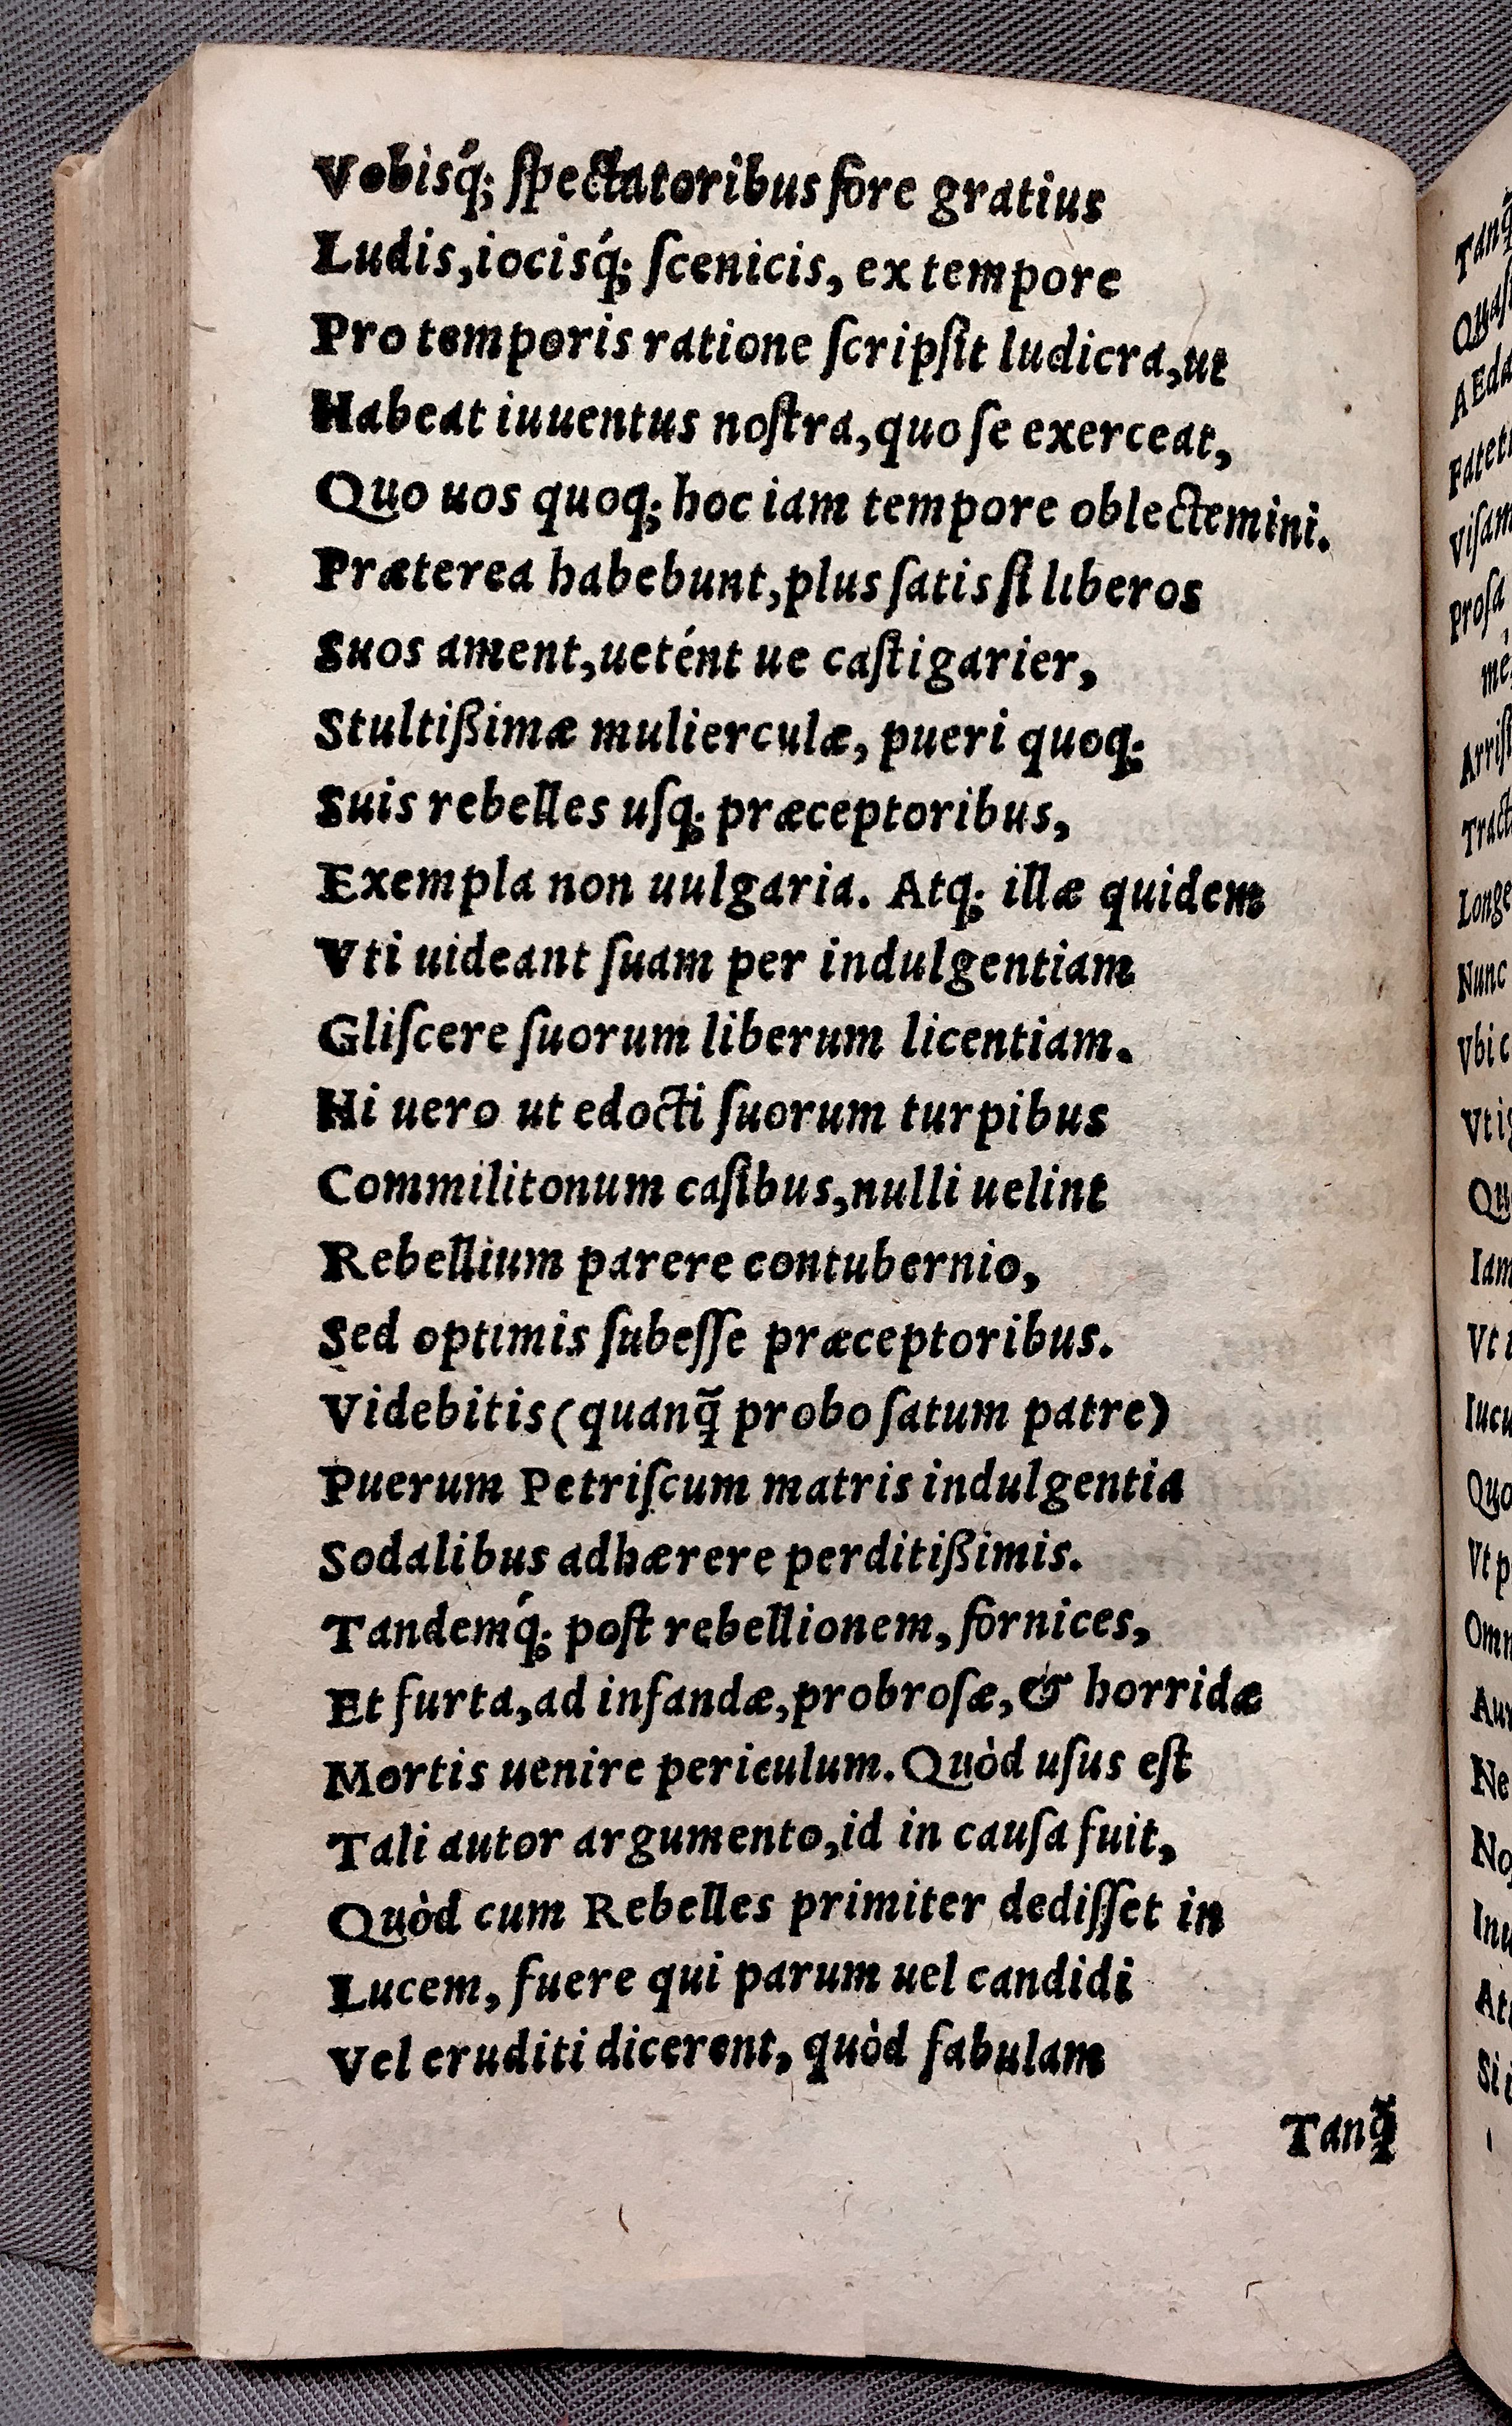 Vobisq́; ſpectatoribus fore gratius
Ludis, iocisq́; ſcenicis, ex tempore
Pro temporis ratione ſcripſit ludicra, ut
Habeat iuuentus noſtra, quo ſe exerceat,
Quo uos quoq; hoc iam tempore oblectemini.
Præterea habebunt, plus ſatis ſi liberos
Suos ament, uetént ue caſtigarier,
Stultißimæ mulierculæ, pueri quoq;
Suis rebelles uſq; præceptoribus,
Exempla non uulgaria. Atq; illæ quidem
Vti uideant ſuam per indulgentiam
Gliſcere ſuorum liberum licentiam.
Hi uero ut edocti ſuorum turpibus
Commilitonum caſibus, nulli uelint
Rebellium parere contubernio,
Sed optimis ſubeſſe præceptoribus.
Videbitis (quanq̃ probo ſatum patre)
Puerum Petriſcum matris indulgentia
Sodalibus adhærere perditißimis.
Tandemq́; poſt rebellionem, fornices,
Et furta, ad infandæ, probroſæ, & horridæ
Mortis uenire periculum. Quòd uſus eſt
Tali autor argumento, id in cauſa fuit,
Quòd cum Rebelles primiter dediſſet in
Lucem, fuere qui parum uel candidi
Vel eruditi dicerent, quòd fabulam
Tanq̃
Nunc